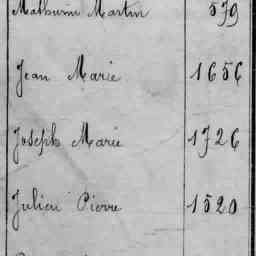 Mathurin Martin 579
Jean Marie 1656
Joseph Marie 1726
Julien Pierre 1520